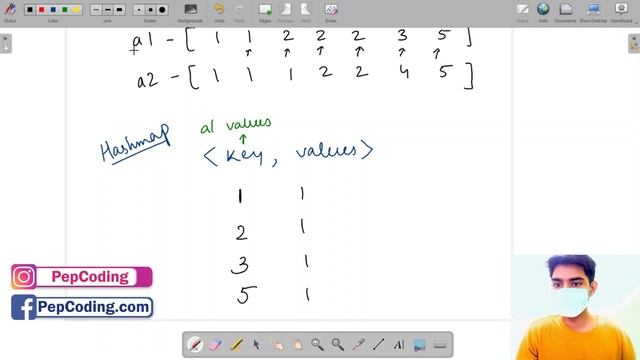 Undo Redo Erase Backgrounds Previous Next Pages Board Web Documents Show Desktop OpenBoard
a1 - [ 1 1 2 2 2 3 5 ]
a2 - [ 1 1 1 2 2 4 5 ]
Hashmap
a1 values
< key, values >
1 1
2 1
3 1
5 1
PepCoding
PepCoding.com